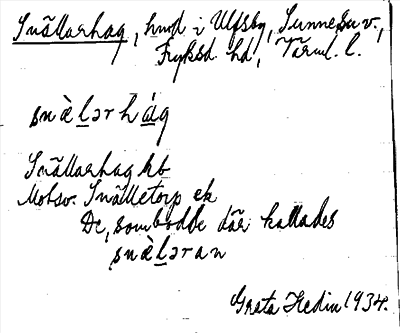 Snällarhag, hmd i Ulfsby, Sunne sn v.,
Fryksd. hd, Värml. l.
snæ̀lərhág
Snällarhag kb
Motsv. Snälletorp ek
De, som bodde där kallades
snæ̀ləran
Greta Hedin 1934.